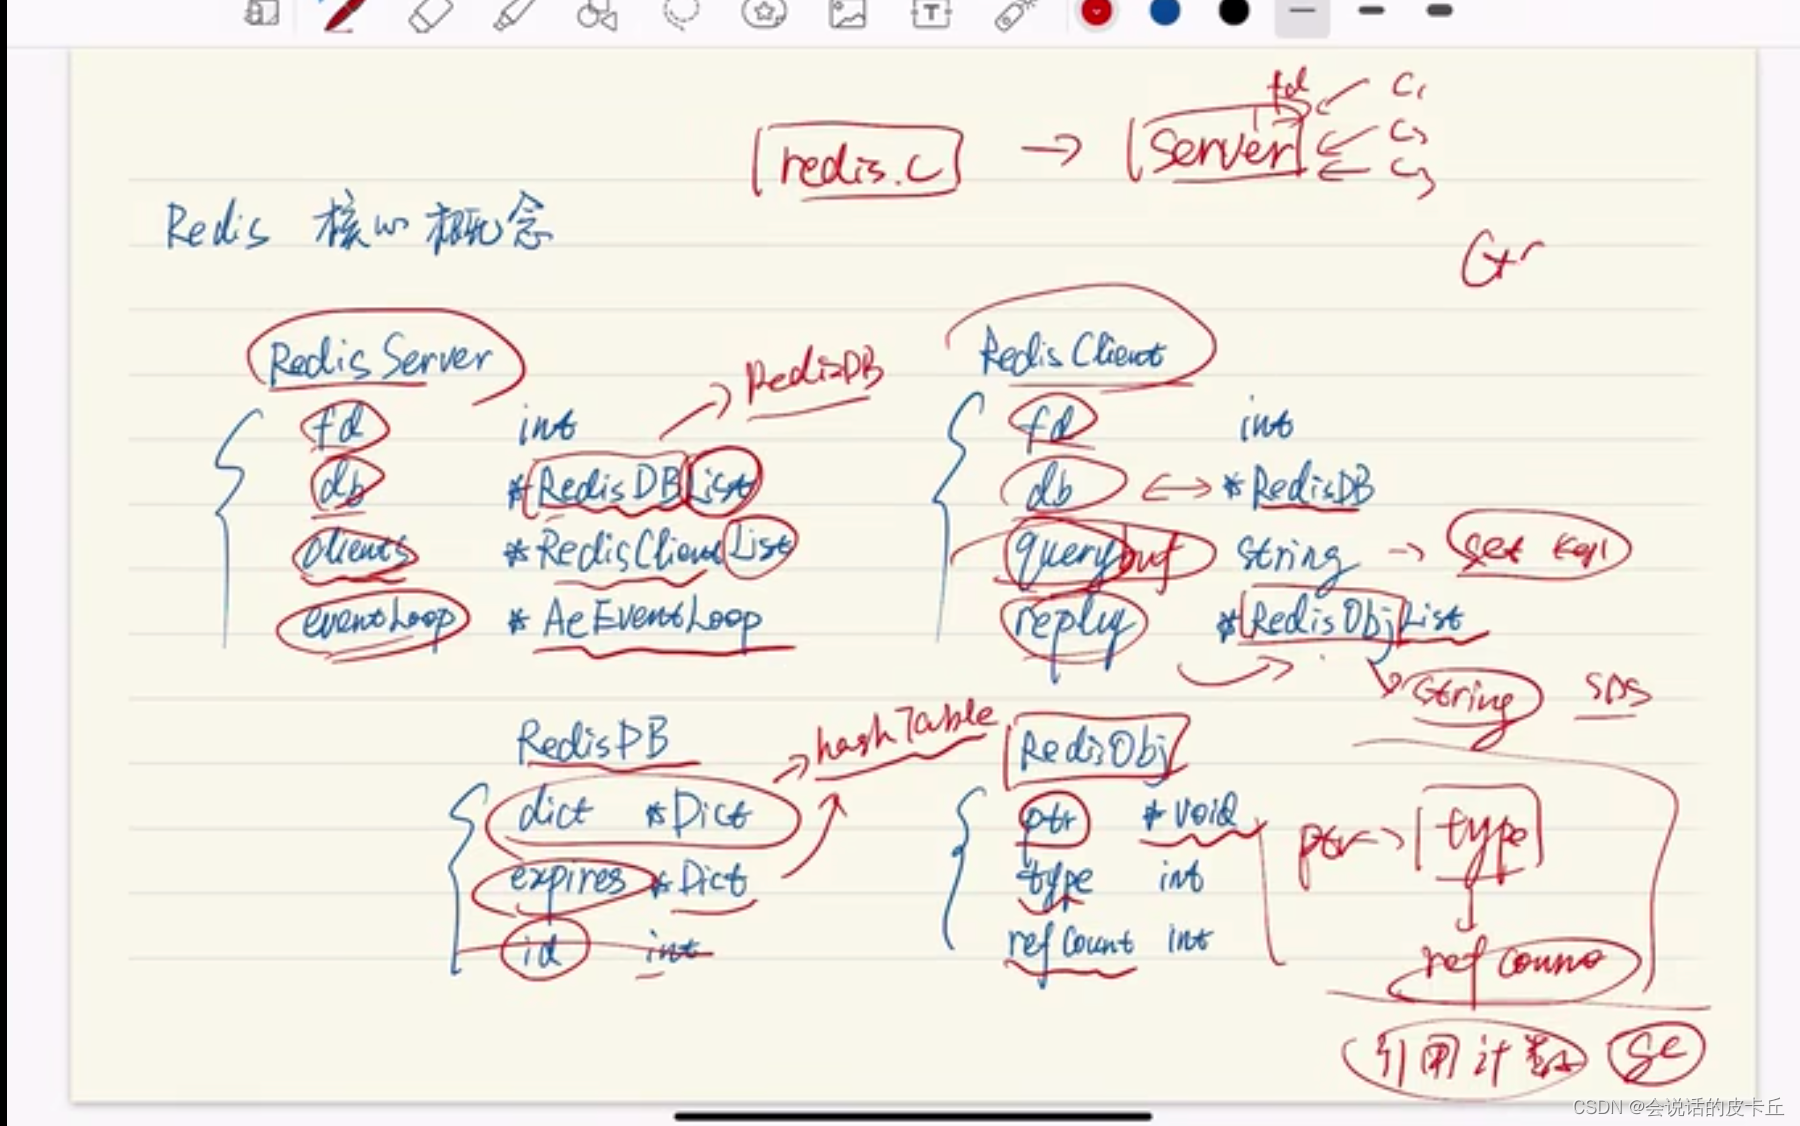 fd C1
redis.c → server C2
C3
Redis 核心概念
Redis Server
RedisDB
Redis Client
fd int
db *RedisDBList
clients *RedisClientList
eventLoop *AeEventLoop
fd int
db ↔ *RedisDB
querybuf string → get key1
reply *RedisObjList
string SDS
RedisDB → hashTable
dict *Dict
expires *Dict
id int
RedisObj
ptr *void
type int
refCount int
ptr → type
ref count
引用计数 GC
CSDN @会说话的皮卡丘